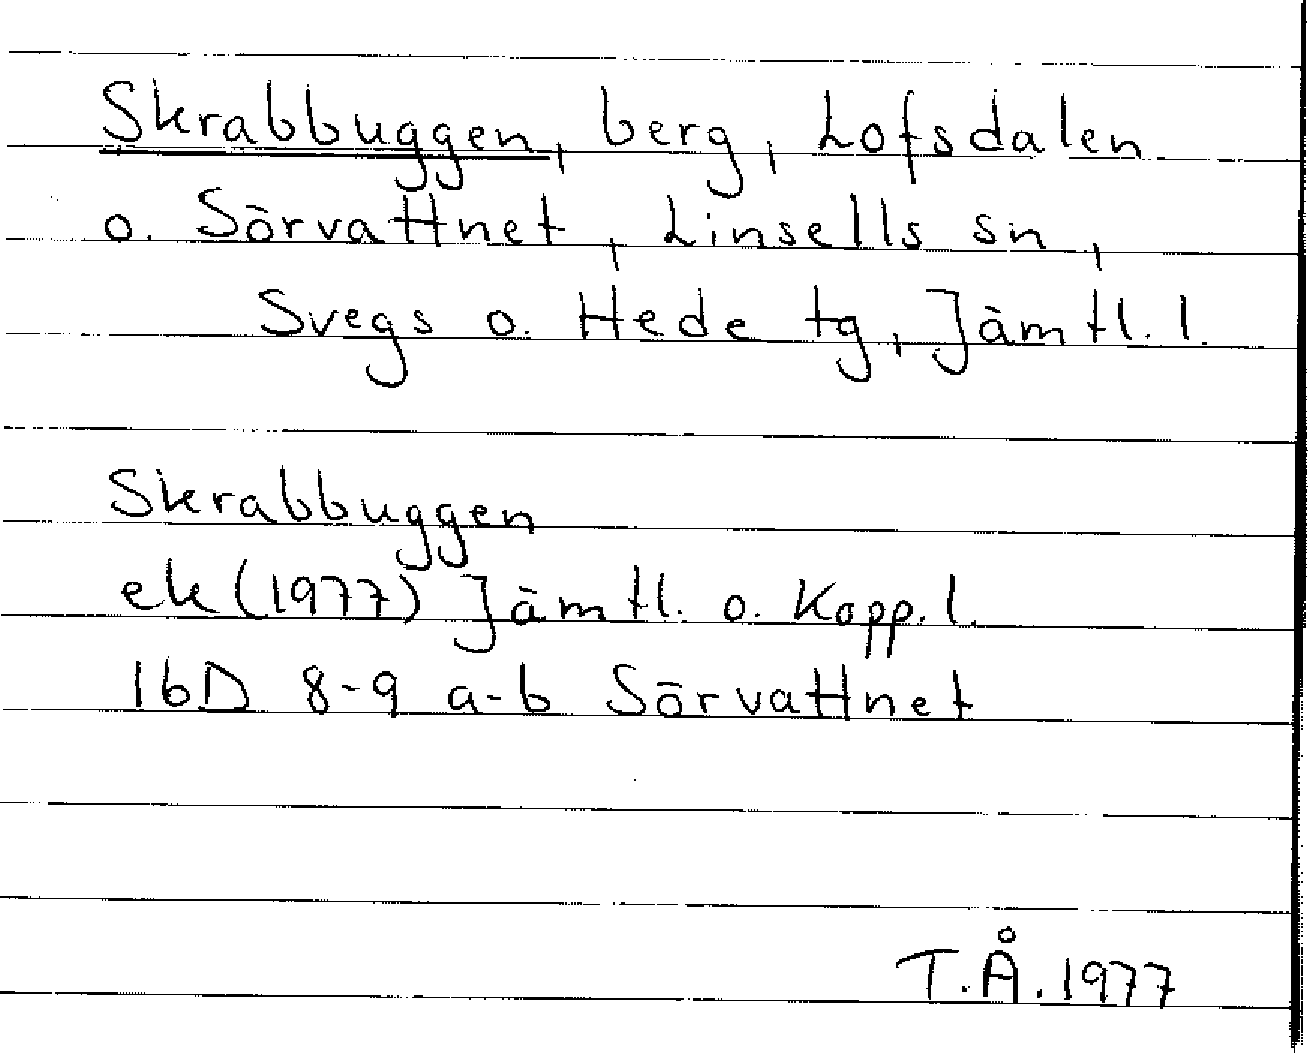 Skrabbuggen, berg, Lofsdalen
o. Sörvattnet, Linsells sn,
Svegs o. Hede tg, Jämtl. l.
Skrabbuggen
ek (1977) Jämtl. o. Kopp. l.
16D 8-9 a-b Sörvattnet
T.Å. 1977